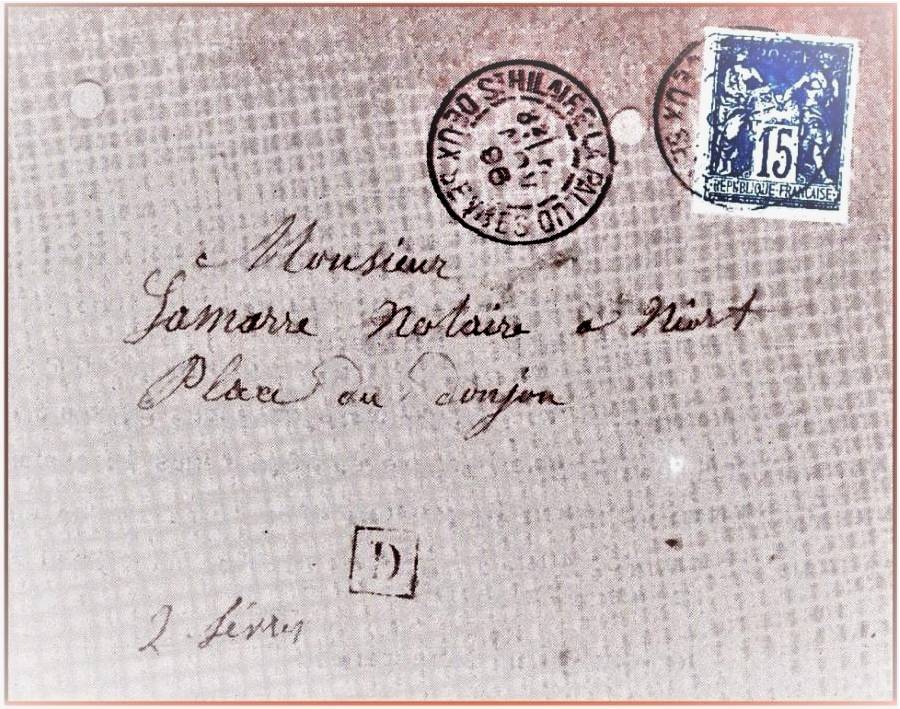 ST HILAIRE-LA-PALUD
96
DEUX SÈVRES
DEUX SÈ
15
REPUBLIQUE FRANÇAISE
a Monsieur
Lamarre Notaire a Niort
Place du donjon
D
2 Sèvres